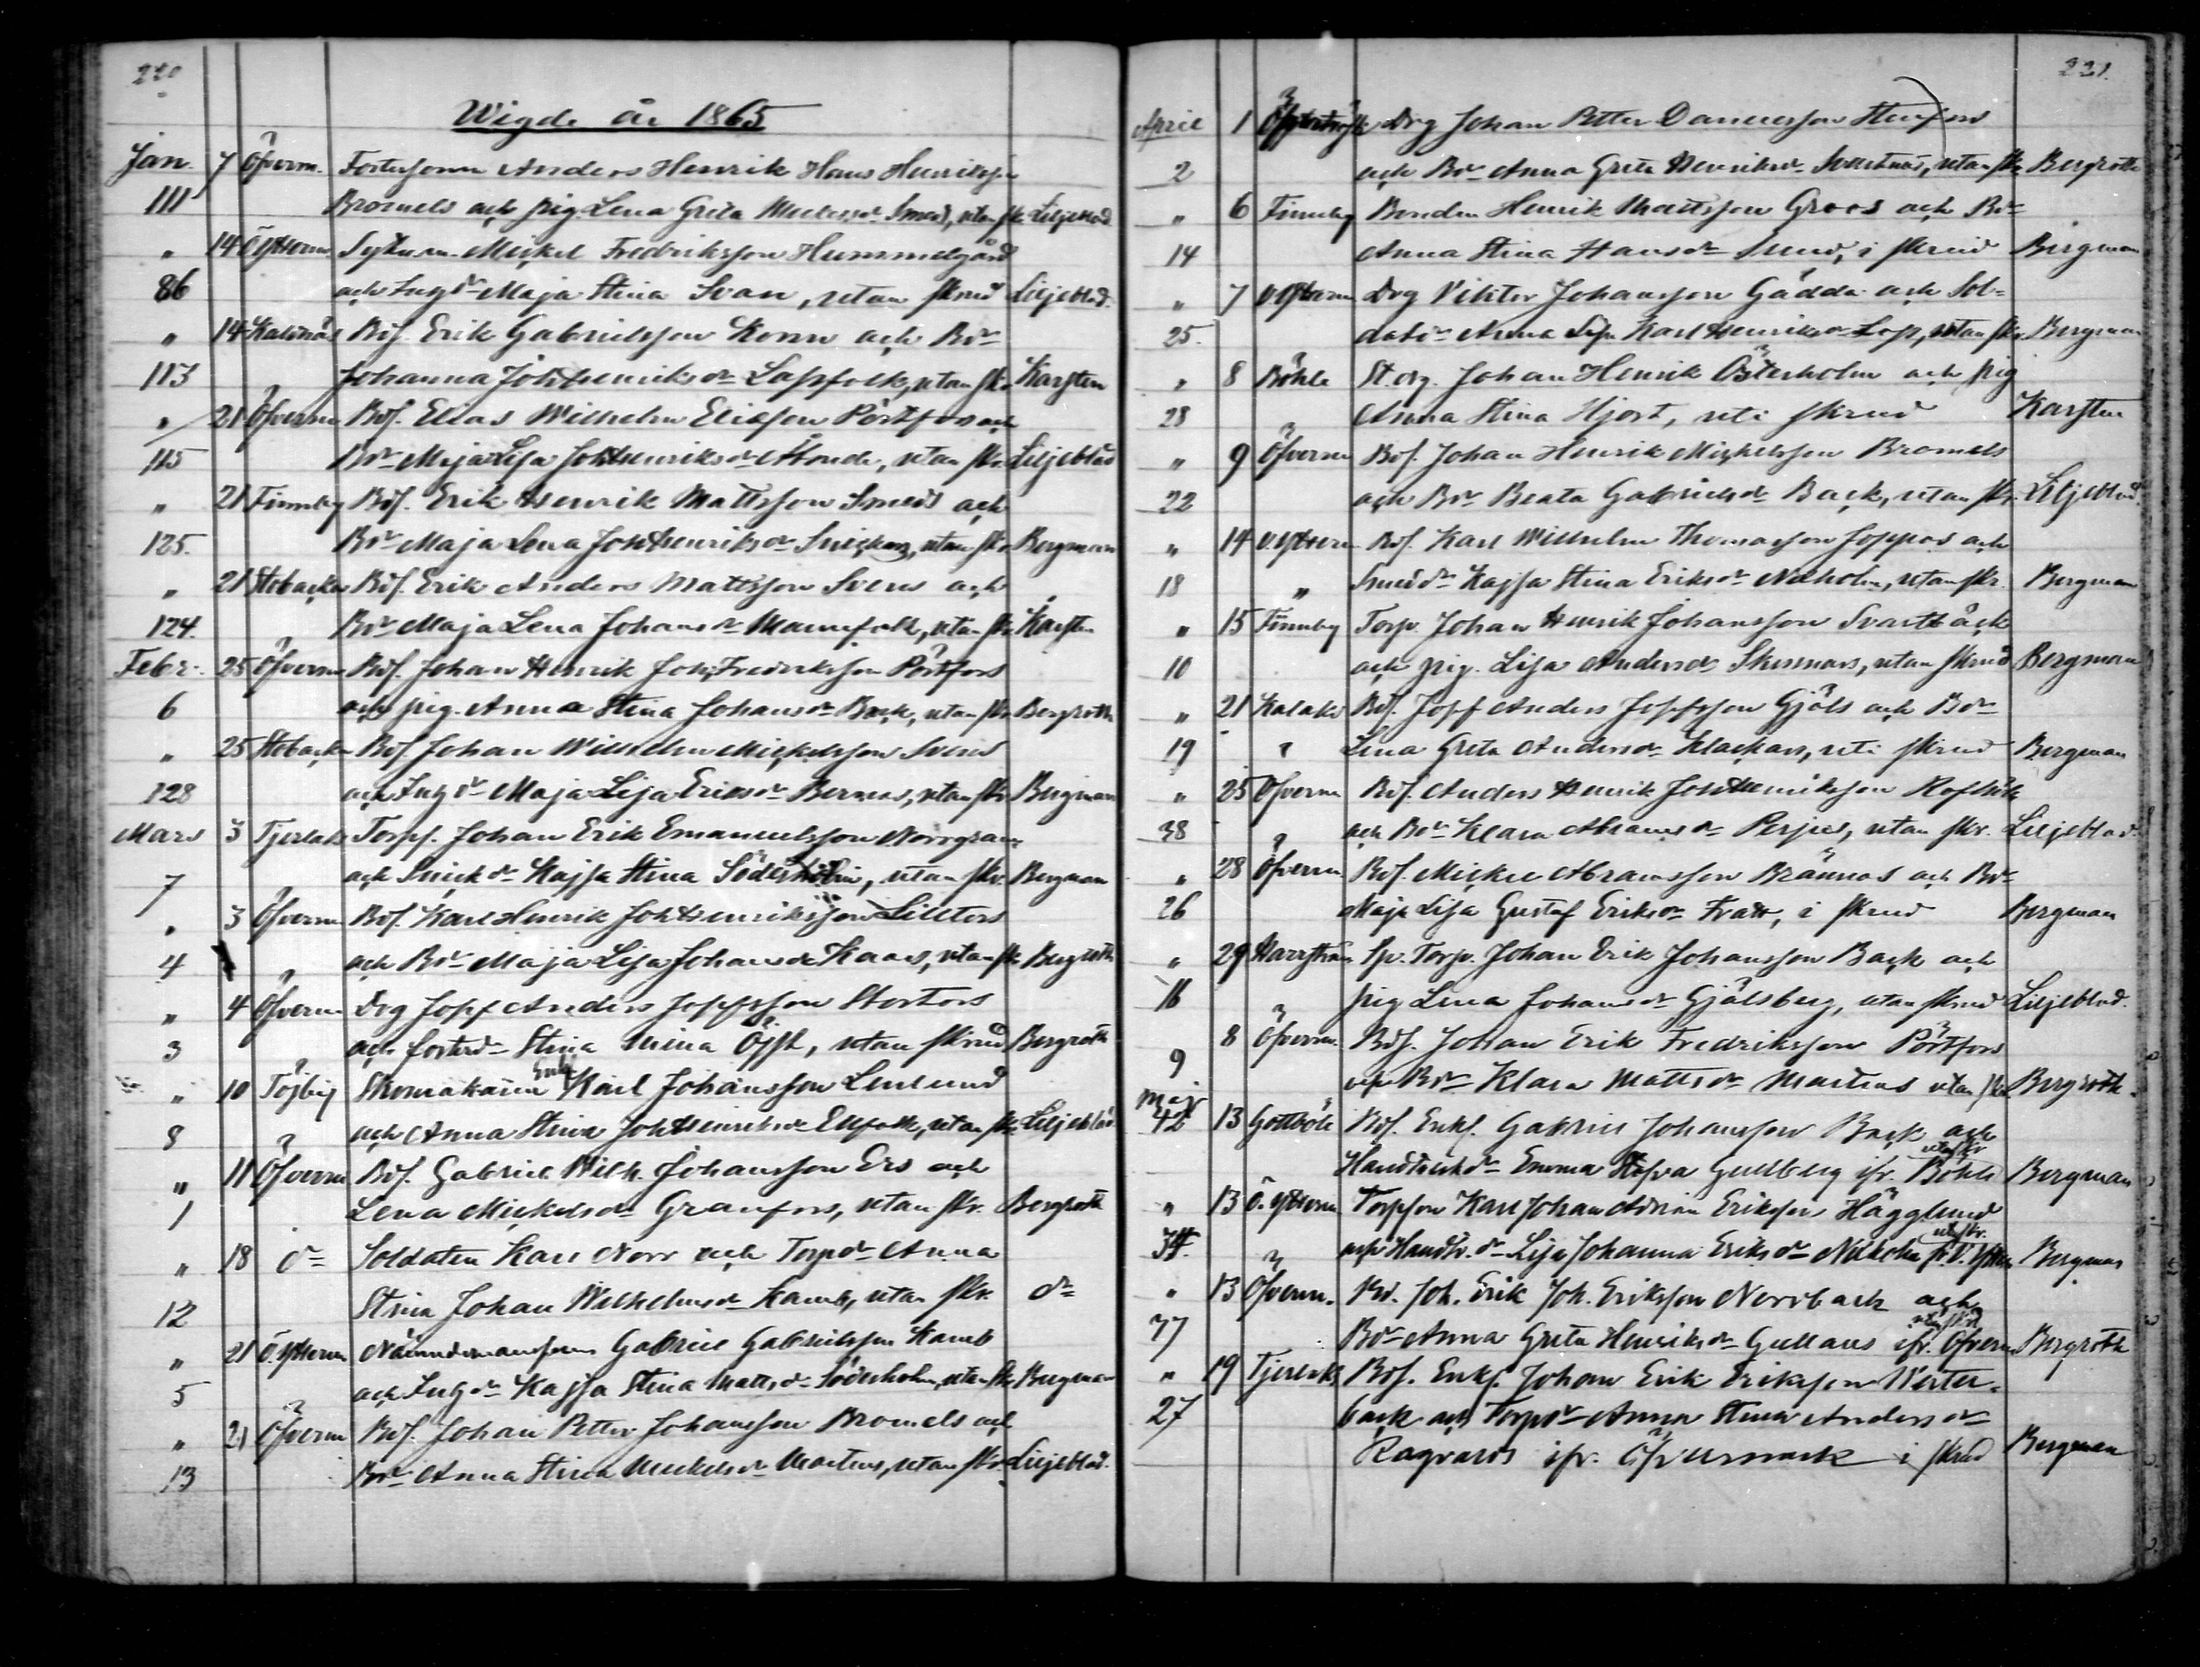 220
Wigde år 1865
Jan. 7 Öfverm. Fostersonen Anders Henrik Hans Henriksson
111 Bromels och pig. Lena Greta Mickelsdr Smeds, utan skr. Liljeblad
" 14 Ö Ytterm. Sytn. m. Mickel Fredriksson Hummelgård
86 och Inhdr Maja Stina Svan, utan skrud Liljeblad.
" 14 Kalxnäs Bds. Erik Gabrielsson Korn och Bdr
113 Johanna Joh Henriksdr Lassfolk, utan skr. Karsten
" 21 Öfverm Bds. Elias Wilhelm Eliasson Pörtfors och
115 Bdr Maja Lisa Joh Henriksdr Åbonde, utan skr. Liljeblad
" 21 Finnby Bds. Erik Henrik Mattsson Smeds och
125. Bdr Maja Lena Joh Henriksdr, utan skr. Bergman
" 21 Stobacka Bds. Erik Anders Mattsson Svens och
124. Bdr Maja Lena Johansdr Mannfolk, utan skr. Karsten
Febr. 25 Öfverm Bds. Johan Henrik Joh. Fredriksson Pörtfors
6 och pig. Anna Stina Johansdr Back, utan skr. Bergroth
" 25 Stobacka Bds Johan Wilhelm Mickelsson Svens
128 och Inhdr Maja Lisa Ericsdr Bernas, utan skr. Bergman
Mars 3 Tjerlaks Torps. Johan Erik Emanuelsson Norrgran
7 och Snickdr Kajsa Stina Söderholm, utan skr. Bergman
" 3 Öfverm Bds. Karl Henrik Joh Henriksson Lilltors
4 och Bdr Maja Lisa Johansdr Kaas, utan skr. Bergroth
" 4 Öfverm Drg Josef Anders Josefsson Stortors
3 och fosterdr Stina Mina Öfst, utan skrud Bergroth
" 10 Töjby Skomakaren Enkl Karl Johansson Lenlund
8 och Anna Stina Joh Henriksdr Ulfvolk, utan skr. Liljeblad
" 11 Öfverm Bds. Gabriel Wilh. Johansson Ers och
1 Lena Mickelsdr Granfors, utan skr. Bergroth
" 18 dr Soldaten Karl Norr och Torpdr Anna
12 Stina Johan Wilhelmsdr Kamb, utan skr. dr
" 21 Ö. Ytterm Nämndemansson Gabriel Gabrielsson Kamb
5 och Inhdr Kajsa Stina Mattsdr Söderholm, utan skr. Bergman
" 21 Öfverm Bds. Johan Petter Johansson Bromels och
13 Bdr Anna Stina Mickelsdr Martens, utan skr. Liljeblad.
221.
April 1 Drg Johan Petter Danielsson Stenfors
2 och Bdr Anna Greta Henriksdr Svartnäs, utan skr. Bergroth
" 6 Finnby Bonden Henrik Mattsson Groos och Bdr
14 Anna Stina Hansdr Lund, i skrud Bergman
" 7 V. Ytterm Drg Viktor Johansson Gädda och Sol-
25. datdr Anna Lisa Karl Henriksdr Lop, utan skr. Bergman
" 8 Böhle St. drg. Johan Henrik Österholm och pig
28 Anna Stina Hjort, uti skrud Karsten
" 9 Öfverm Bds. Johan Henrik Mickelsson Bromels
22 och Bdr Beata Gabrielsdr Back, utan skr. Liljeblad.
" 14 V. Ytterm Bds. Karl Wilhelm Thomasson Joppas och
18 " Smeddr Kajsa Stina Eriksdr Nilholm, utan skr. Bergman
" 15 Finnby Torp. Johan Henrik Johansson Svartbäck
10 och pig. Lisa Andersdr Skinnars, utan skrud Bergman
" 21 Kalaks Bds. Josf Anders Josefsson Gjöls och Bdr
19 " Lena Greta Andersdr Klackars, uti skrud Bergman
" 25 Öfverm Bds. Anders Henrik Joh Henriksson Rofholk
38 och Bdr Klara Abramsdr Perjus, utan skr. Liljeblad.
" 28 Öfverm Bds. Mickel Abramsson Brännas och Bdr
26 Maja Lisa Gustaf Eriksdr Frast, i skrud Bergman
" 29 Harrström Sp. Torp. Johan Erik Johansson Back och
16 pig Lena Johansdr Gjälsberg, utan skrud Liljeblad.
8 Öfverm. Bds. Johan Erik Fredriksson Pörtfors
9 och Bdr Klara Mattsdr Martens utan skr. Bergroth.
Maj
42 13 Gottböle Bds. Enkl. Gabriel Johansson Back och
Handtverkdr Emma Stefva Gullberg ifr. Böhle utan skr Bergman
" 13 Ö. Ytterm Torpson Karl Johan Adrian Eriksson Hägglund
34. och Handtv.dr Lisa Johanna Eriksdr Nilholm fr. V. Ytterm utan skr. Bergman
" 13 Öfverm. Bds. Joh. Erik Joh. Eriksson Norrback och
37 Bdr Anna Greta Henriksdr Gullans ifr. Öfverm utan skrd Bergroth
" 19 Tjerlaks Bds. Enkl. Johan Erik Eriksson Wester-
27 back och Torpdr Anna Stina Andersdr
Ragvards ifr. Öfvermark i skrud Bergman